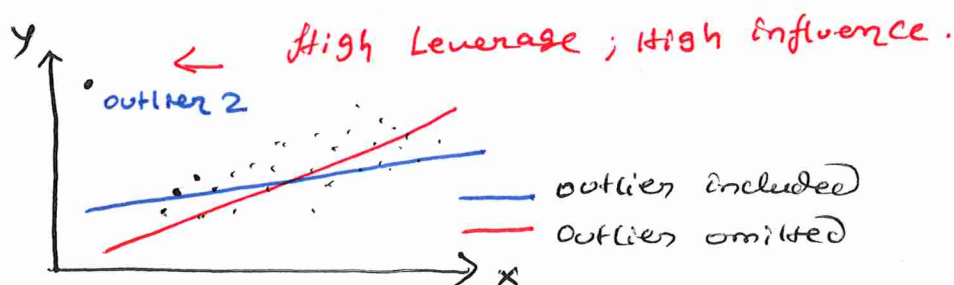 y
← High Leverage ; High influence.
outlier 2
outlier included
outlier omitted
x